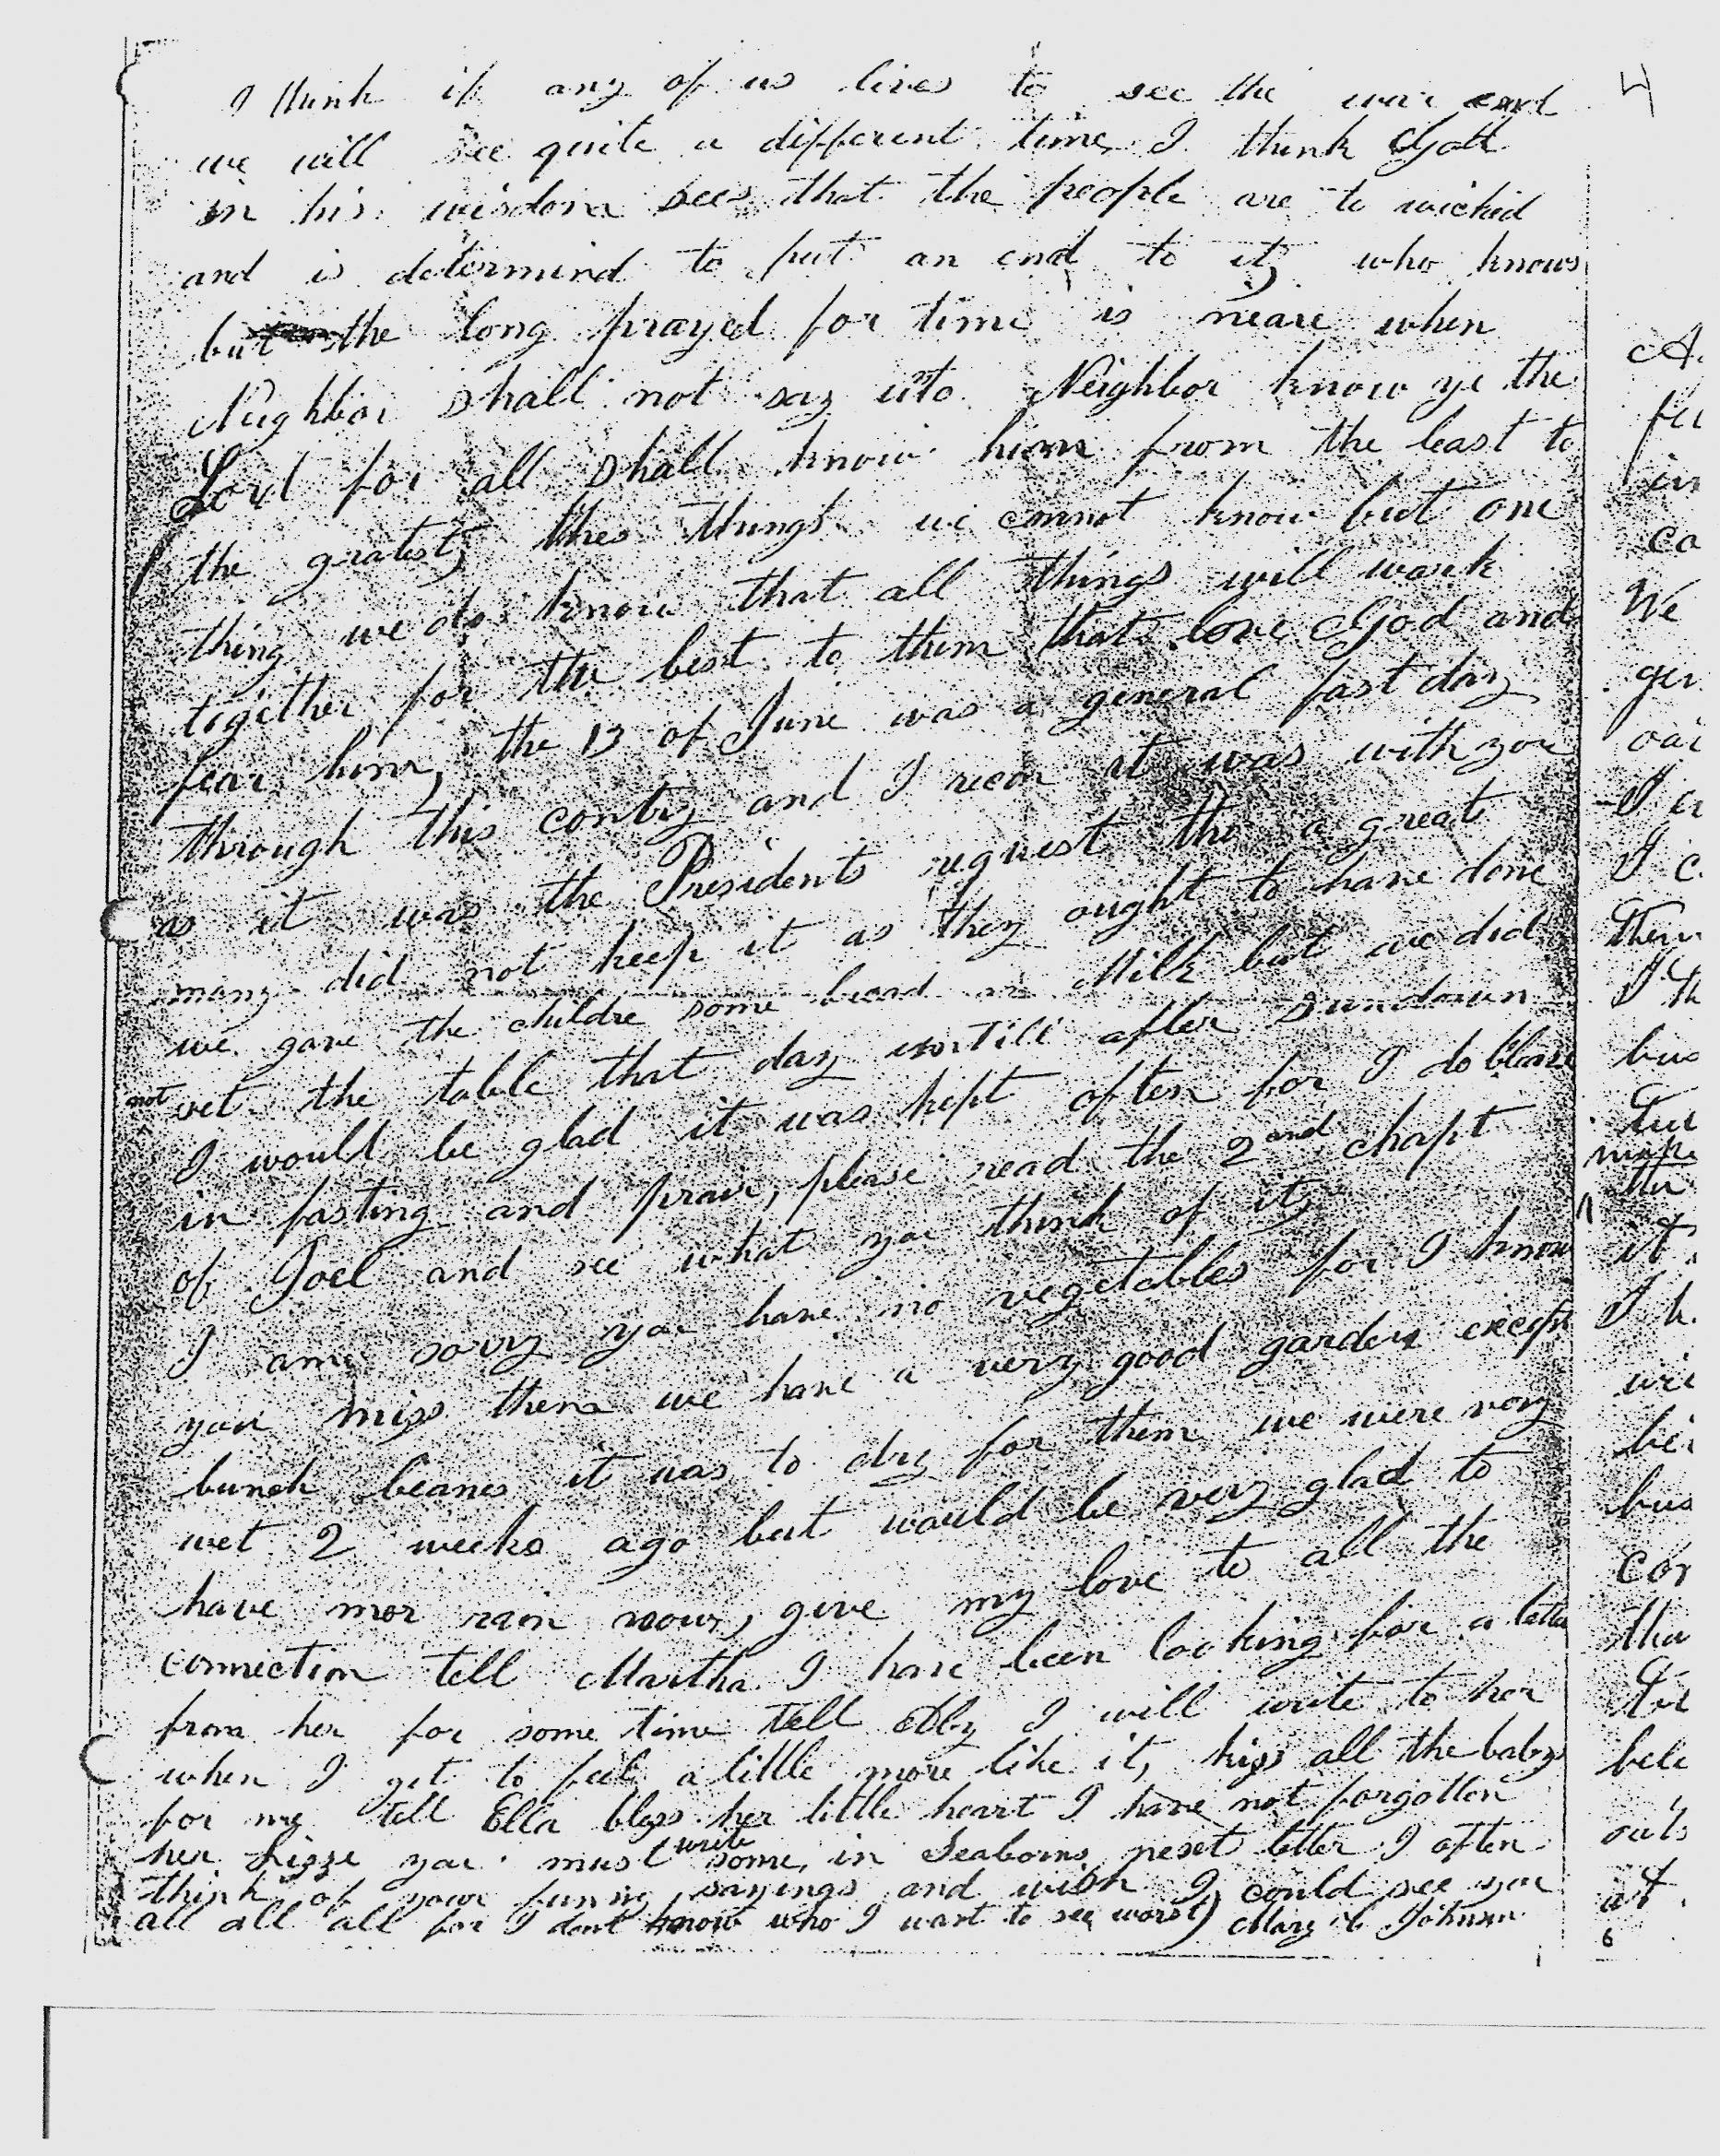 4
I think if any of us lives to see the war end
we will see quite a different time, I think God
in his wisdom sees that the people are to wicked
and is determind to put an end to it, who knows
but the long prayed for time is neare when
Neighbor shall not say unto Neighbor know ye the
Lord for all shall know him from the least to
the gratest, thes things we cannot know but one
thing we do know that all things will work
together for the best to them that love God and
fear him, the 13 of June was a general fast day
through this contry and I recon it was with you
as it was the Presidents request tho a great
many did not keep it as they ought to have done
we gave the childre some bread an Milk but we did
not set the table that day untill after sundown
I would be glad it was kept often for I do bleave
in fasting and prair, please read the 2and chapt
of Joel and see what you think of it,
I am sorry you have no vegetables for I know
you miss them we have a very good garden except
bunch beanes it was to dry for them we were very
wet 2 weeks ago but would be very glad to
have mor rain now, give my love to all the
connection tell Martha I have been looking for a letter
from her for some time tell Aby I will write to her
when I get to feel a little more like it, kiss all the babys
for me tell Ella bless her little heart I have not forgotten
her Lizze you must write some, in Seaborns next letter I often
think of your funny sayings and wish I could see you
all all all for I dont know who I want to see worst) Mary Johnson
We
I c
I th
bus
it
I h
bus
tha
at
6